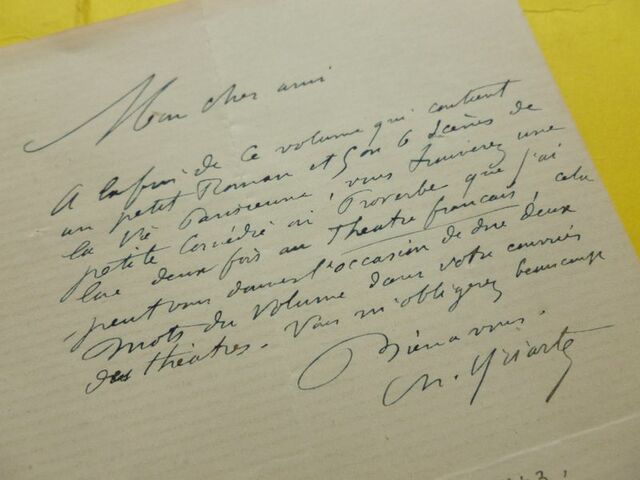 Mon cher ami
A la fin de ce volume qui contient
un petit Roman et 5 ou 6 Scènes de
la Vie Parisienne, vous trouverez une
petite Comédie ou Proverbe que j'ai
lue deux fois au Theatre français, cela
peut vous donner l'occasion de dire deux
mots du volume dans votre courrier
des théatres. Vous m'obligerez beaucoup
Bien a vous.
Ch. Yriarte